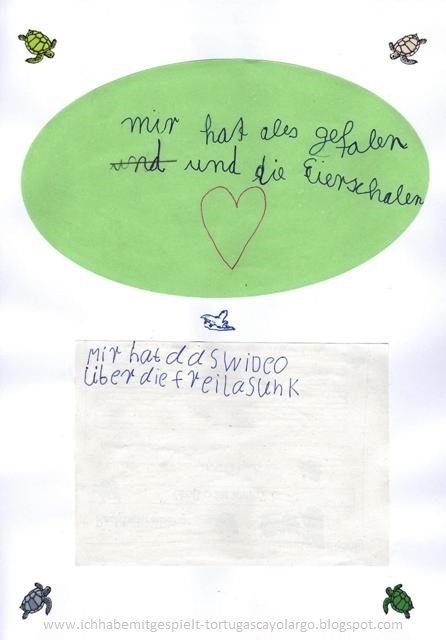 mir hat ales gefalen
und und die Eierschalen
Mir hat das WiDEO
über die freilasunk
www.ichhabemitgespielt-tortugascayolargo.blogspot.com